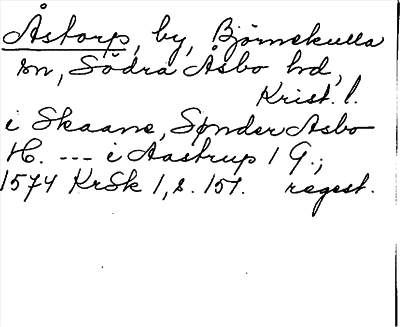 Åstorp, by, Björnekulla
sn, Södra Åsbo hd,
Krist. l.
i Skaane, Sønder Asbo
H. --- i Aastrup 1 G.;
1574 KrSk 1, s. 151. regest.